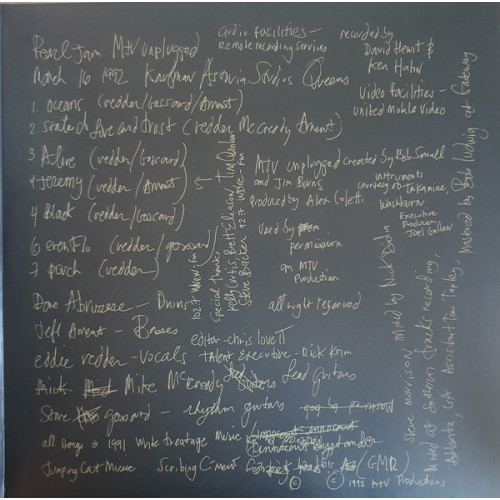 Pearl Jam MTV unplugged
March 16 1992 Kaufman Astoria Studios Queens
1. oceans (vedder/Gossard/Ament)
2. state of love and trust (vedder McCready Ament)
3 Alive (vedder/Gossard)
4 Jeremy (vedder/Ament)
4 Black (vedder/Gossard)
6 even flo (vedder/gossard)
7 porch (vedder)
Dave Abruzzese - Drums
Jeff Ament - Basses
eddie vedder - vocals
Mike McCready Lead Guitars
Stone gossard - rhythm guitars
all songs © 1991 Write treatage Music
innocent bystander
Jumping Cat Music Scribing C-ment (GMR)
© © 1992 MTV Productions
audio facilities -
remote recording services
recorded by
David Hewitt &
Ken Hahn
Video facilities -
united Mobile Video
MTV unplugged created by Bob Small
and Jim Burns
produced by Alex Coletti
instruments
courtesy of Takamine,
Washburn
Executive
Producer
Joel Gallen
used by
permission
of MTV
Production
all right reserved
editor - chris lovett
Talent Executive - Rick Krim
special thanks
Kelly Curtis, Brett Eliason, Tim
Steve Backer
102.7 WNEW-fm
92.7 WDRE-fm
mixed by Nick DiDia
Steve Morrison
Mixed at Southern Tracks recording,
Atlanta, GA
Mastered by Bob Ludwig at Gateway